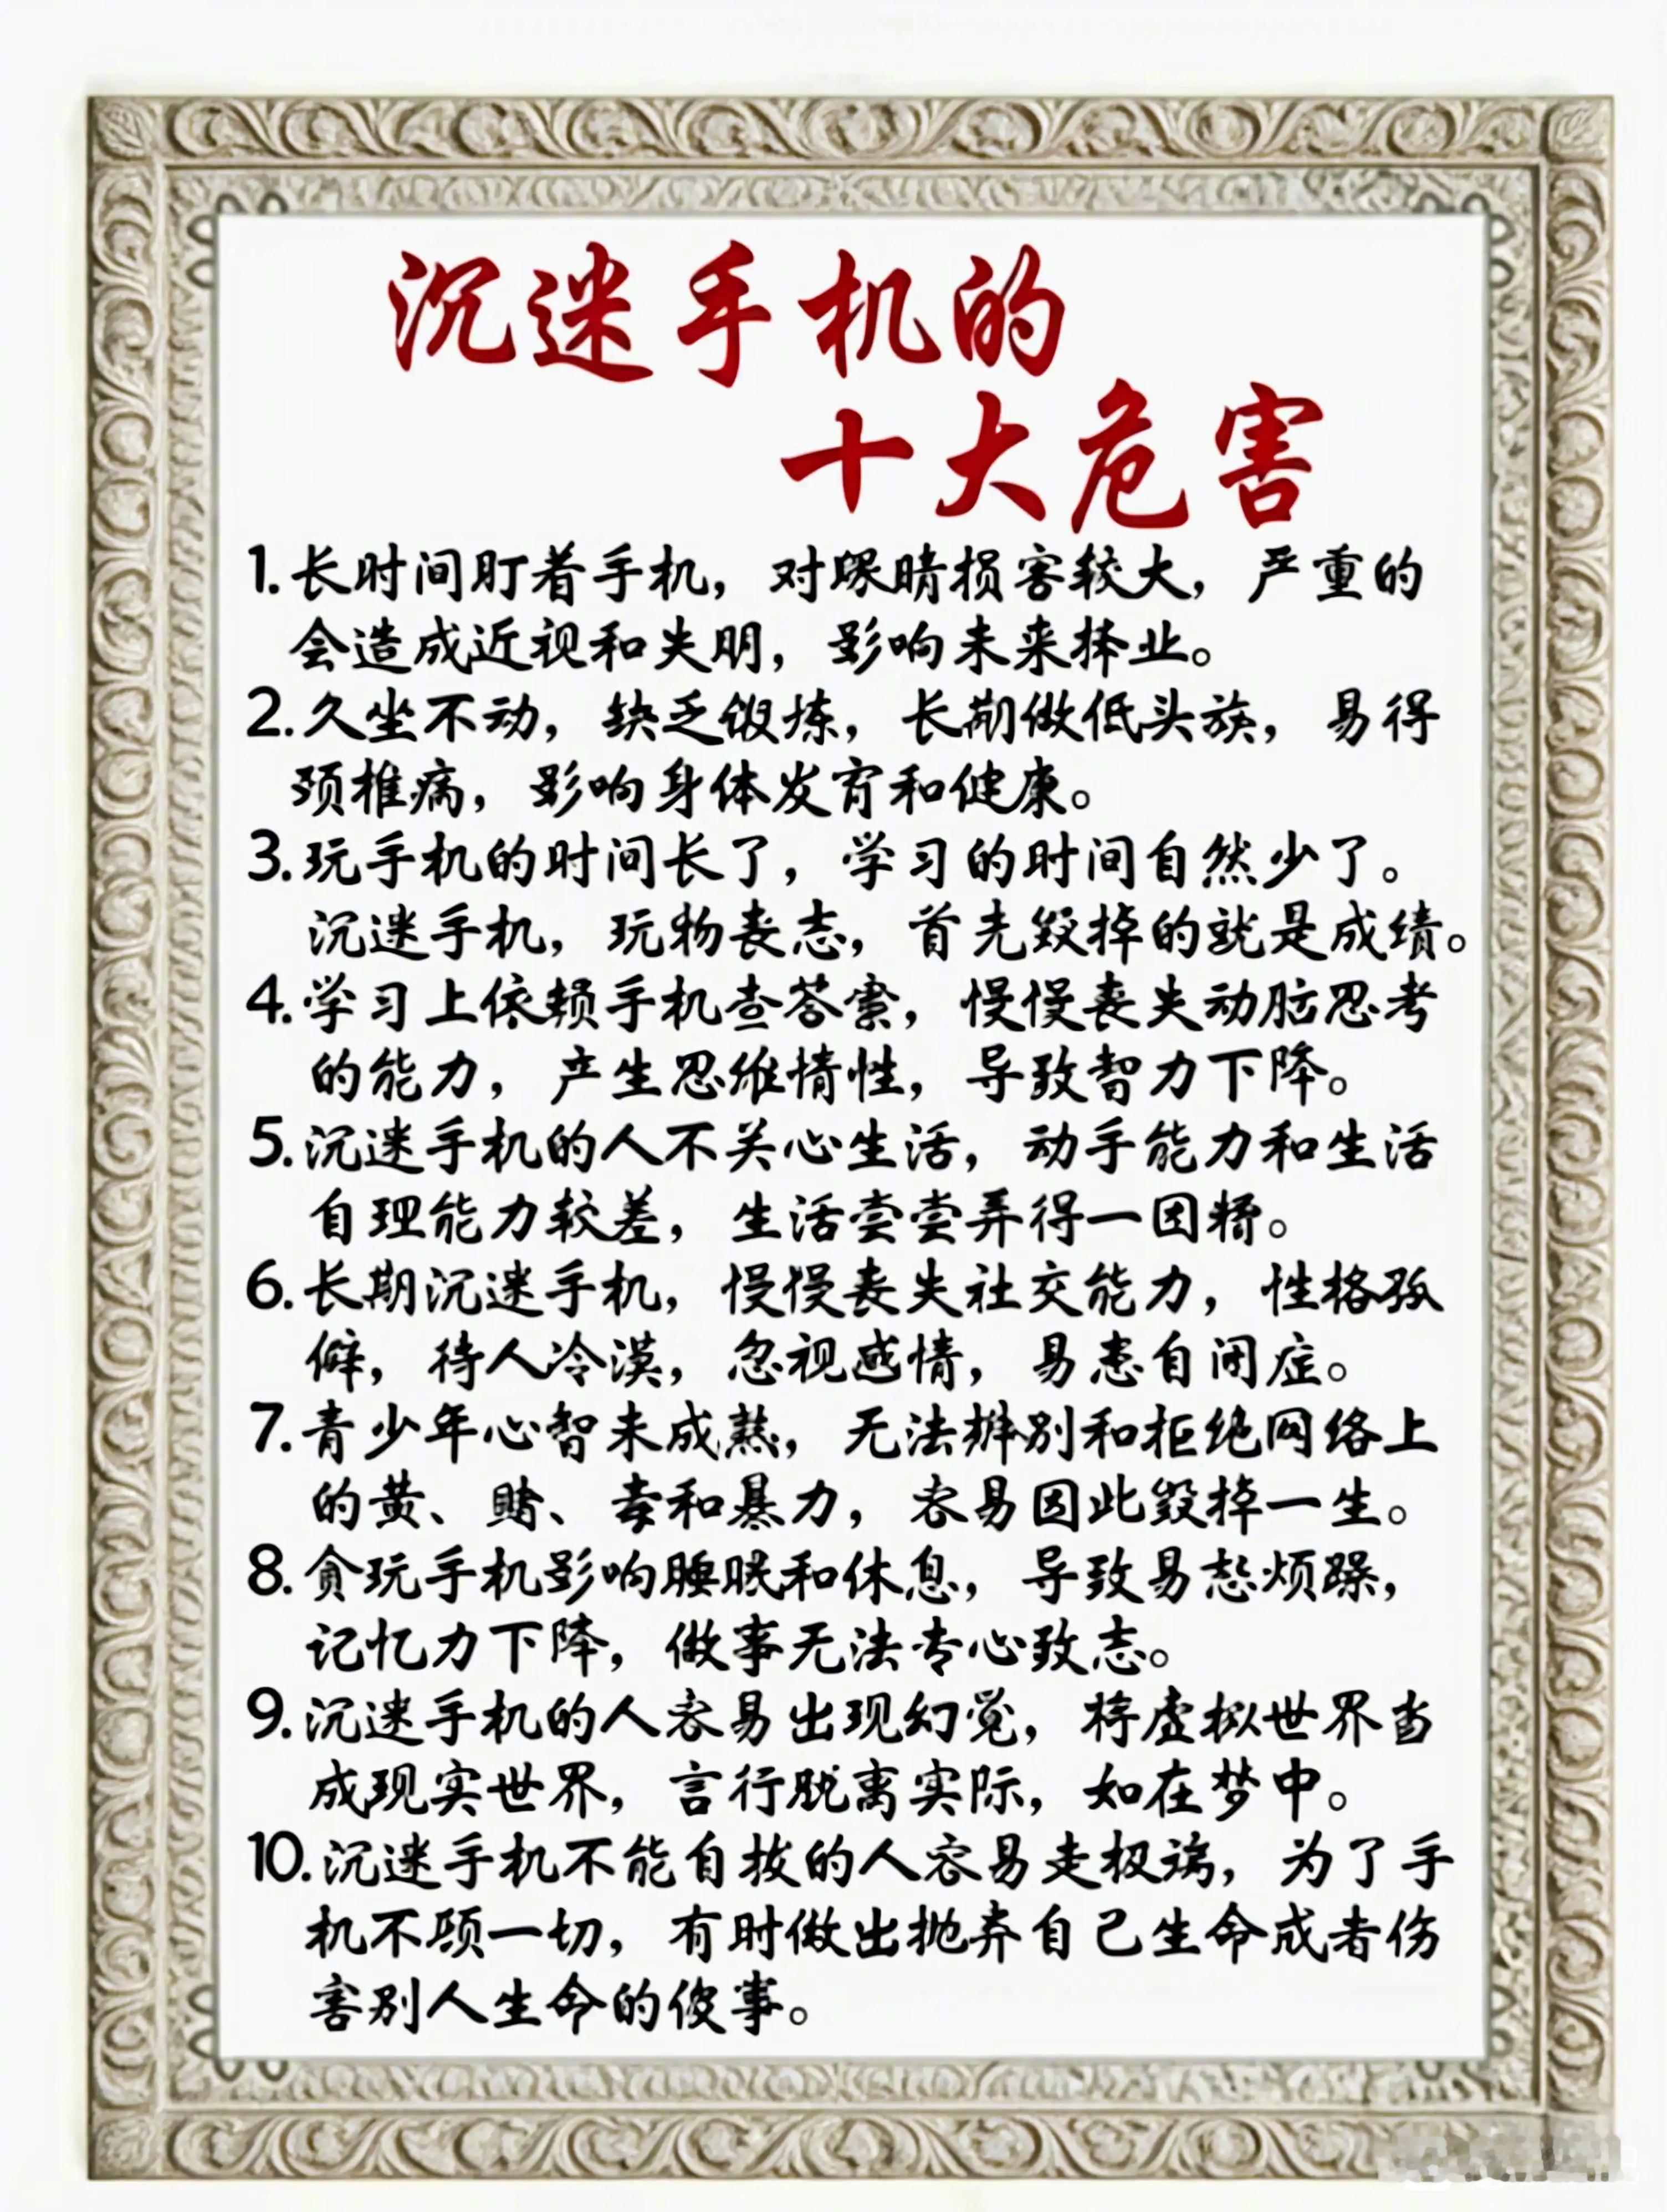 沉迷手机的
十大危害
1.长时间盯着手机，对眼睛损害较大，严重的
会造成近视和失明，影响未来择业。
2.久坐不动，缺乏锻炼，长期做低头族，易得
颈椎病，影响身体发育和健康。
3.玩手机的时间长了，学习的时间自然少了。
沉迷手机，玩物丧志，首先毁掉的就是成绩。
4.学习上依赖手机查答案，慢慢丧失动脑思考
的能力，产生思维惰性，导致智力下降。
5.沉迷手机的人不关心生活，动手能力和生活
自理能力较差，生活常常弄得一团糟。
6.长期沉迷手机，慢慢丧失社交能力，性格孤
僻，待人冷漠，忽视感情，易患自闭症。
7.青少年心智未成熟，无法辨别和拒绝网络上
的黄、赌、毒和暴力，容易因此毁掉一生。
8.贪玩手机影响睡眠和休息，导致易怒烦躁，
记忆力下降，做事无法专心致志。
9.沉迷手机的人容易出现幻觉，将虚拟世界当
成现实世界，言行脱离实际，如在梦中。
10.沉迷手机不能自拔的人容易走极端，为了手
机不顾一切，有时做出抛弃自己生命或者伤
害别人生命的傻事。